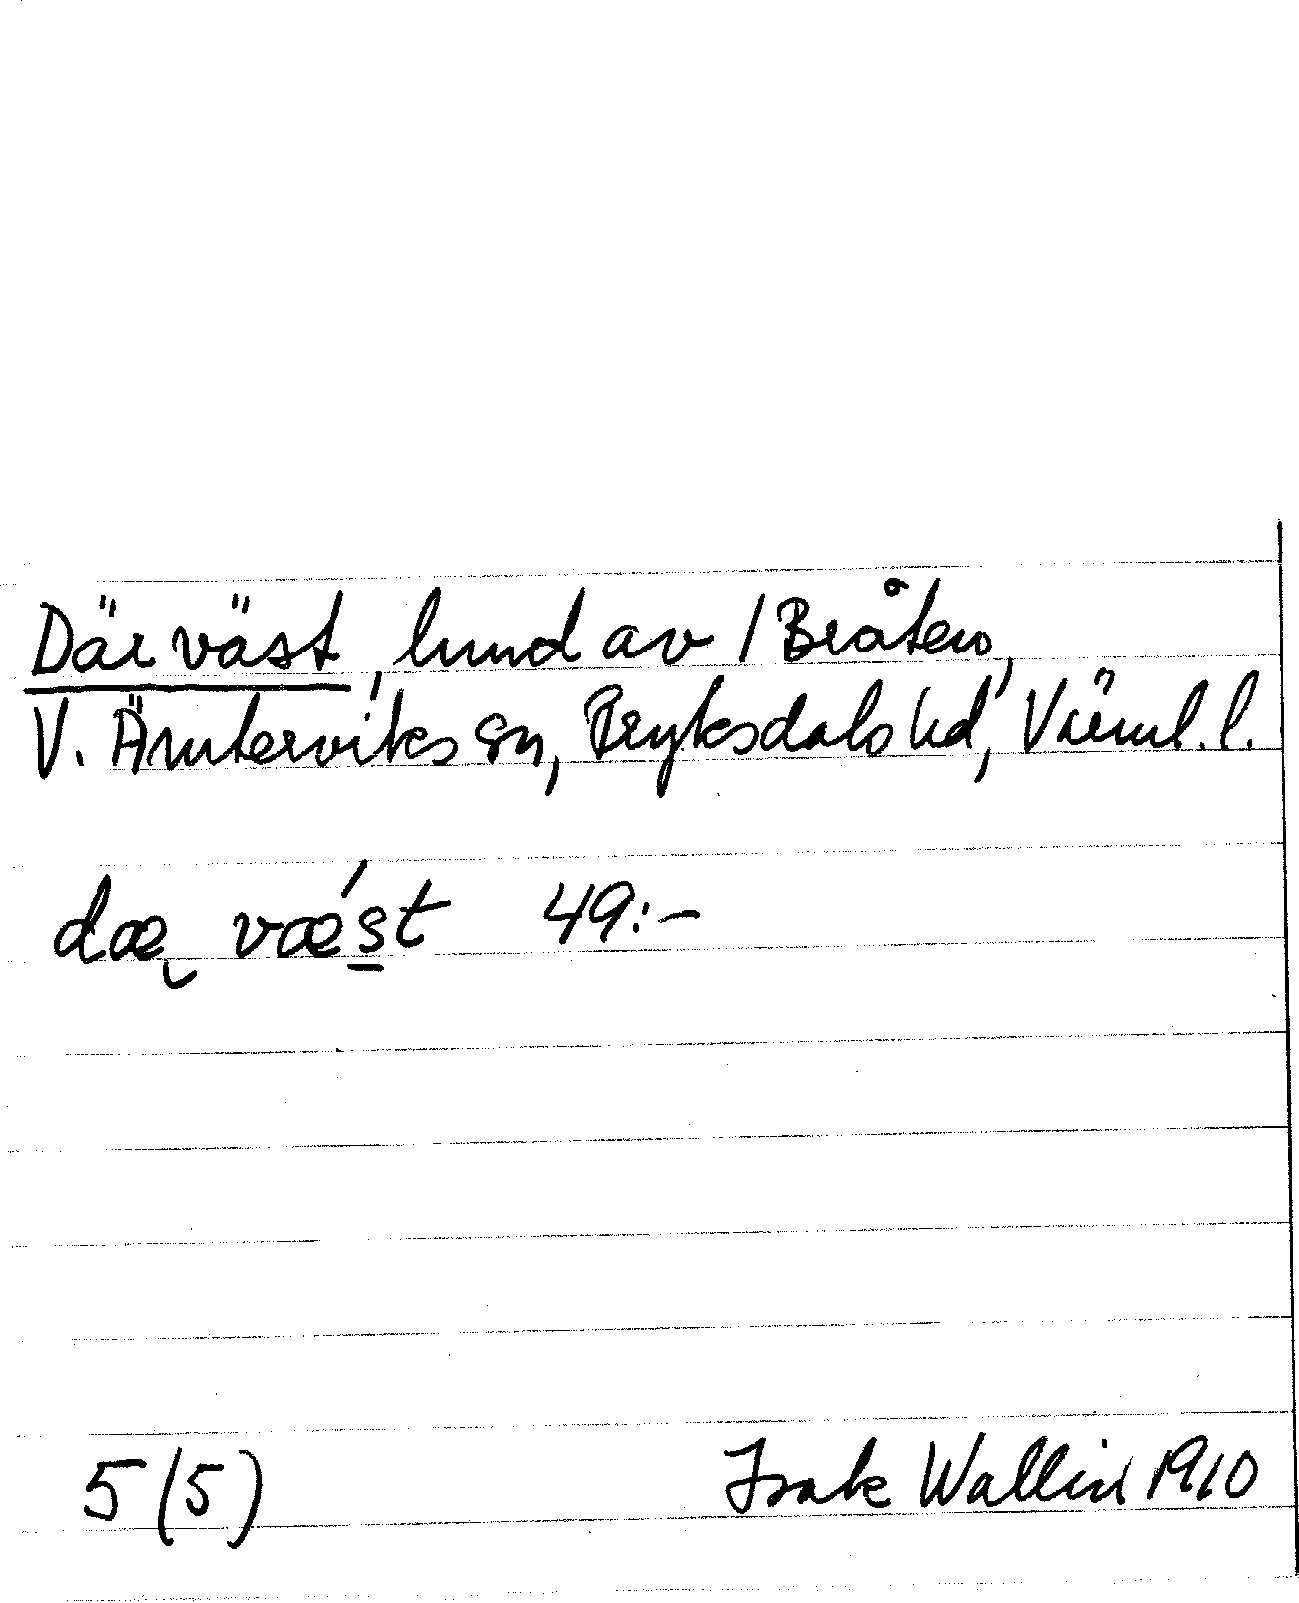 Där väst, lund av 1 Bråten,
V. Ämterviks sn, Fryksdals hd, Värml. l.
dæ̨ vǽs̲t 49:-
5 (5) Isak Wallin 1910